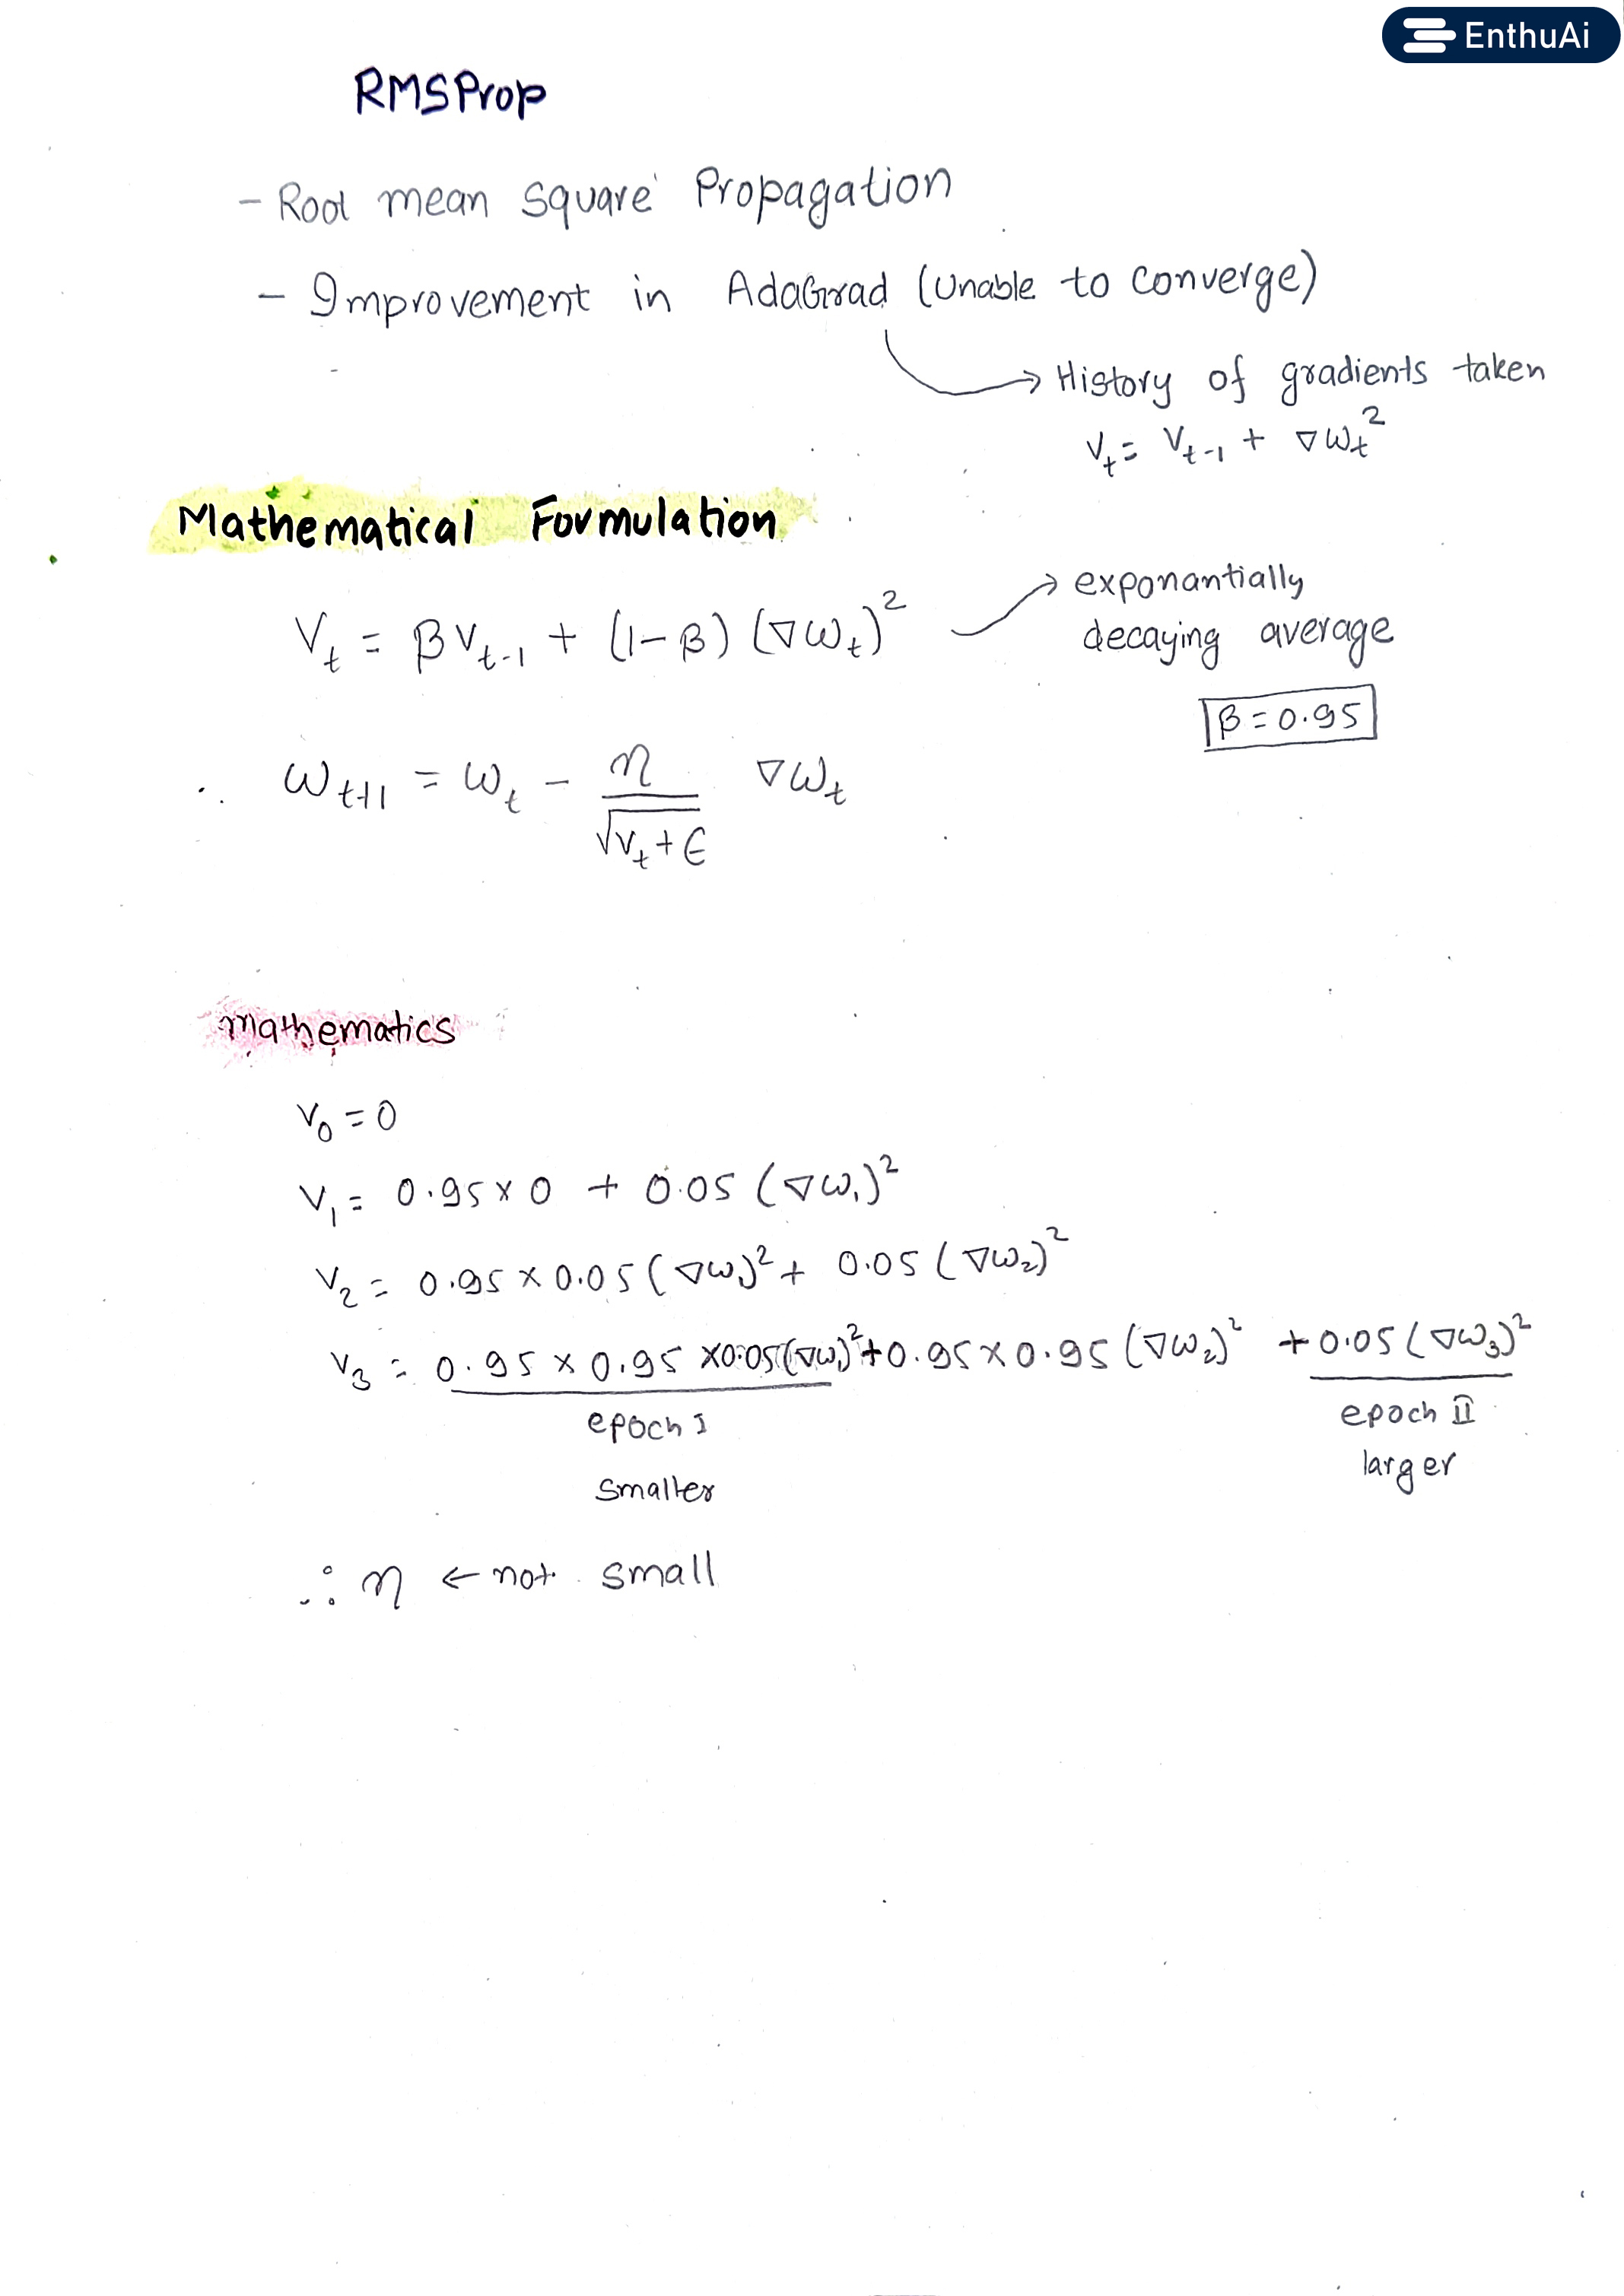 EnthuAi
RMSProp
- Root mean square Propagation
- Improvement in AdaGrad (Unable to converge)
→ History of gradients taken
V_t = V_{t-1} + ∇ω_t²
Mathematical Formulation
V_t = βV_{t-1} + (1-β) (∇ω_t)² → exponantially
decaying average
β = 0.95
∴ ω_{t+1} = ω_t - η/√(V_t + ϵ) ∇ω_t
mathematics
V_0 = 0
V_1 = 0.95 × 0 + 0.05 (∇ω_1)²
V_2 = 0.95 × 0.05 (∇ω_1)² + 0.05 (∇ω_2)²
V_3 = 0.95 × 0.95 × 0.05 (∇ω_1)² + 0.95 × 0.95 (∇ω_2)² + 0.05 (∇ω_3)²
epoch I epoch II
smaller larger
∴ η ← not small